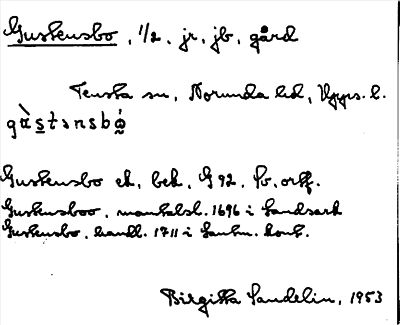 Gustensbo, 1/2, jr, jb, gård
Tensta sn, Norunda hd, Upps. l.
Gustensbo ek. bek. G 92. Sv. ortf.
Gustensboo, mantalsl. 1696 i Landsark
Gustensbo, handl. 1711 i Lantm. kont.
Birgitta Sandelin, 1953